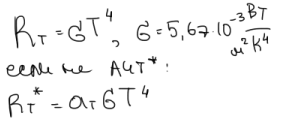 R_T = σT⁴, σ = 5,67·10⁻³ Вт/м²К⁴
если не АЧТ*:
R_T* = a_T σT⁴